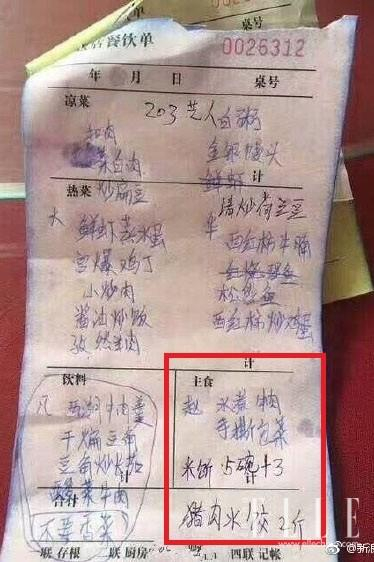 餐饮单
0026312
年 月 日 桌号
凉菜 203 艺人 白粥
扣肉 金银馒头
菜白肉 鲜虾
炒扁豆 计
热菜 清炒荷兰豆
火 鲜虾蒸水蛋 华 西红柿牛腩
宫爆鸡丁 红烧鲤鱼
小炒肉 松鼠鱼
酱油炒饭 西红柿炒鸡蛋
孜然羊肉
计
饮料 主食
凡 西湖牛肉羹 赵 水煮牛肉
干煸豆角 手撕包菜
豆角炒茄
酸菜牛肉 米饼 5碑+3
计
合计
不要香菜 猪肉水饺 2斤
联 存根 联 厨房 四联 记帐
ELLE
www.ellechina.com
@新